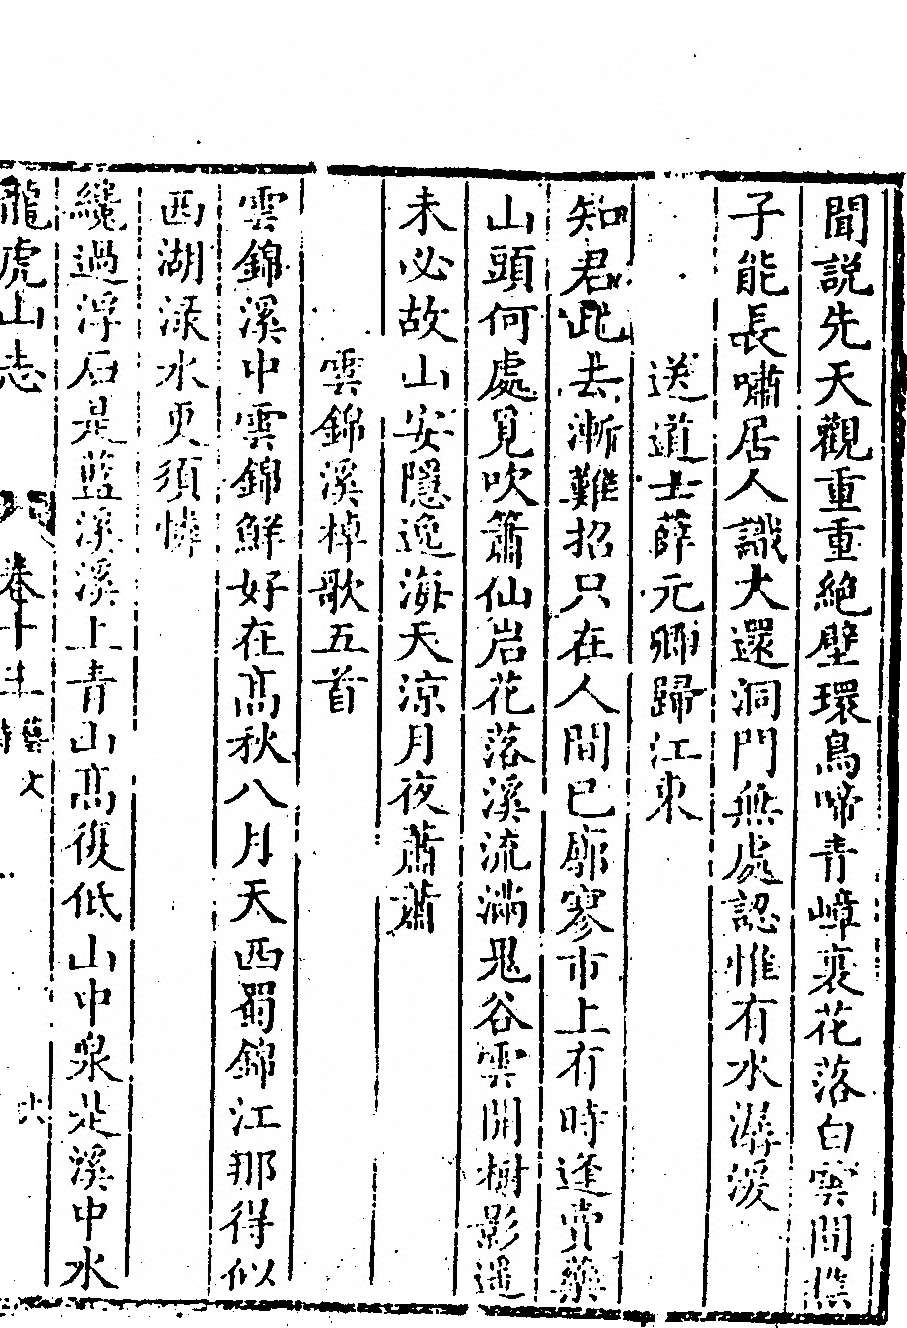 聞説先天觀重重絶壁環鳥啼青嶂裏花落白雲間樵
子能長嘯居人識大還洞門無處認惟有水潺湲
送道士薛元卿歸江東
知君此去漸難招只在人間已廓寥市上有時逢賣藥
山頭何處覓吹簫仙岩花落溪流滿鬼谷雲開樹影遥
未必故山安隱逸海天凉月夜蕭蕭
雲錦溪棹歌五首
雲錦溪中雲錦鮮好在髙秋八月天西蜀錦江那得似
西湖渌水更須憐
纔過浮石是藍溪溪上青山髙復低山中泉是溪中水
龍虎山志 卷十 藝文